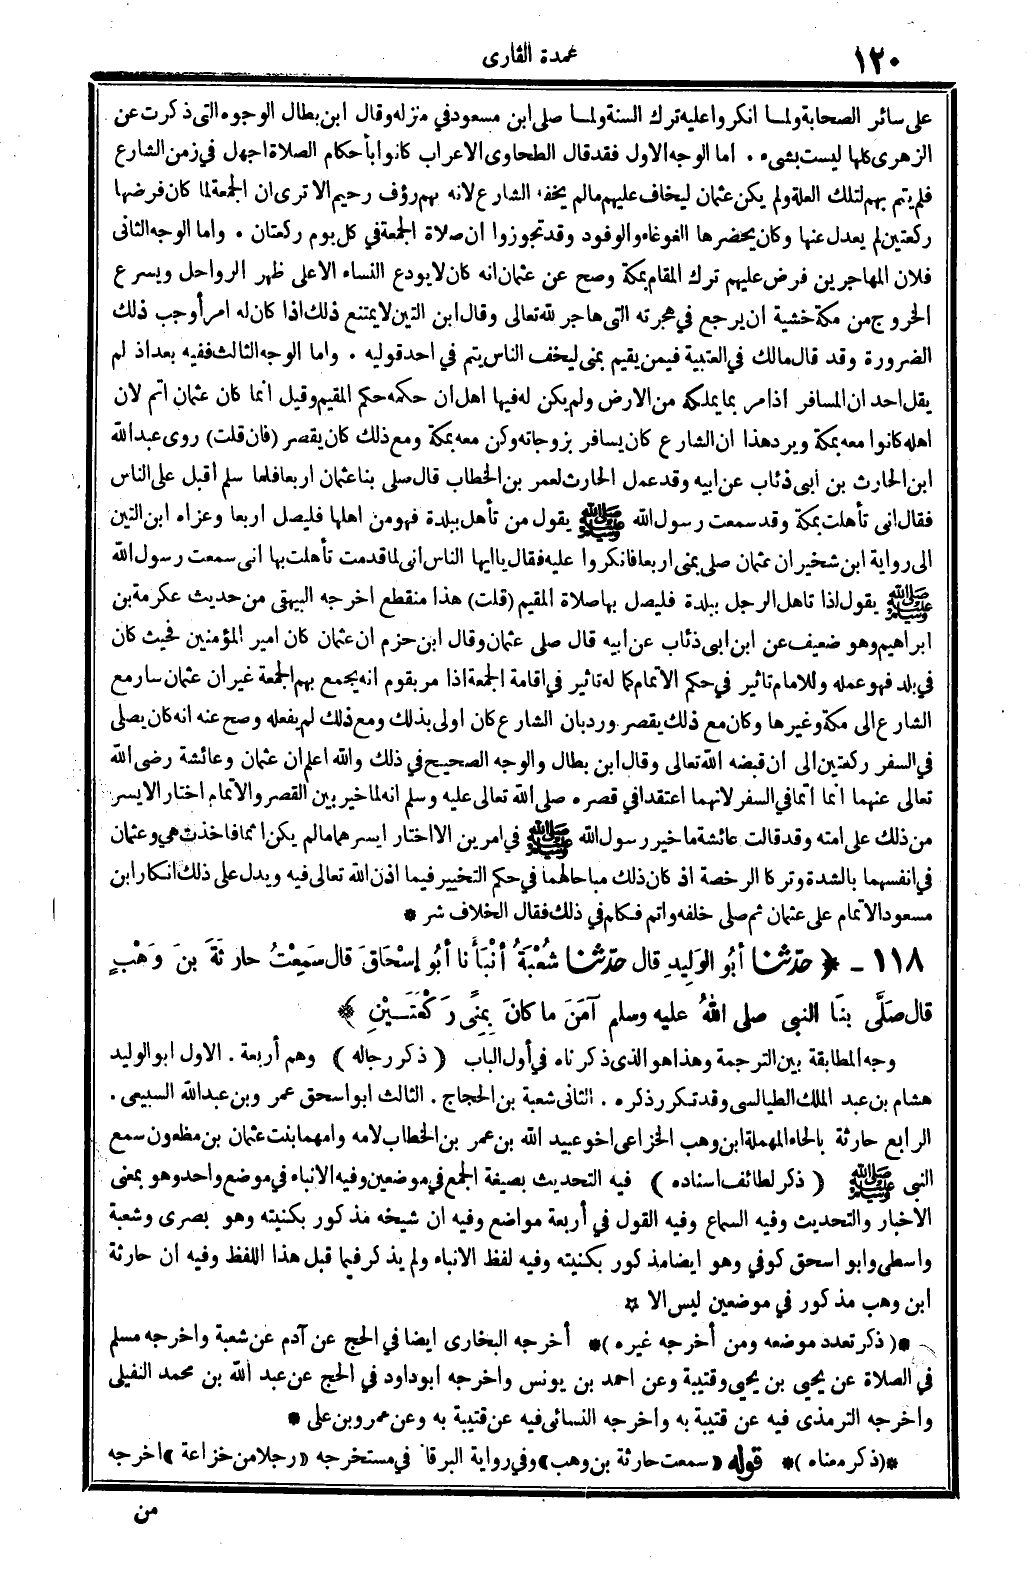 ١٢٠
عمدة القارى
على سائر الصحابة ولما انكروا عليه ترك السنة ولما صلى ابن مسعود في منزله وقال ابن بطال الوجوه التى ذكرت عن
الزهرى كلها ليست بشىء . اما الوجه الاول فقد قال الطحاوى الاعراب كانوا بأحكام الصلاة اجهل في زمن الشارع
فلم يتم بهم لتلك العلة ولم يكن عثمان ليخاف عليهم مالم يخفه الشارع لانه بهم رؤف رحيم الا ترى ان الجمعة لما كان فرضها
ركعتين لم يعدل عنها وكان يحضرها الغوغاء والوفود وقد تجوزوا ان صلاة الجمعة في كل يوم ركعتان . واما الوجه الثانى
فلان المهاجرين فرض عليهم ترك المقام بمكة وصح عن عثمان انه كان لا يودع النساء الاعلى ظهر الرواحل ويسرع
الخروج من مكة خشية ان يرجع في هجرته التى هاجر لله تعالى وقال ابن التين لا يمتنع ذلك اذا كان له امر أوجب ذلك
الضرورة وقد قال مالك في العتبية فيمن يقيم بمنى ليخف الناس يتم في احد قوليه . واما الوجه الثالث ففيه بعد اذ لم
يقل احد ان المسافر اذا مر بما يملكه من الارض ولم يكن له فيها اهل ان حكمه حكم المقيم وقيل انما كان عثمان اتم لان
اهله كانوا معه بمكة ويرد هذا ان الشارع كان يسافر بزوجاته وكن معه بمكة ومع ذلك كان يقصر (فان قلت) روى عبد الله
ابن الحارث بن ابى ذئاب عن ابيه وقد عمل الحارث لعمر بن الخطاب قال صلى بنا عثمان اربعا فلما سلم أقبل على الناس
فقال انى تأهلت بمكة وقد سمعت رسول الله ﷺ يقول من تأهل ببلدة فهو من اهلها فليصل اربعا وعزاه ابن التين
الى رواية ابن شخير ان عثمان صلى بمنى اربعا فانكروا عليه فقال يا ايها الناس انى لما قدمت تأهلت بها انى سمعت رسول الله
ﷺ يقول اذا تاهل الرجل ببلدة فليصل بها صلاة المقيم (قلت) هذا منقطع اخرجه البيهقى من حديث عكرمة بن
ابراهيم وهو ضعيف عن ابن ابى ذئاب عن ابيه قال صلى عثمان وقال ابن حزم ان عثمان كان امير المؤمنين فحيث كان
في بلد فهو عمله وللامام تاثير في حكم الاتمام كما له تاثير في اقامة الجمعة اذا مر بقوم انه يجمع بهم الجمعة غير ان عثمان سار مع
الشارع الى مكة وغيرها وكان مع ذلك يقصر ورد بان الشارع كان اولى بذلك ومع ذلك لم يفعله وصح عنه انه كان يصلى
في السفر ركعتين الى ان قبضه الله تعالى وقال ابن بطال والوجه الصحيح في ذلك والله اعلم ان عثمان وعائشة رضى الله
تعالى عنهما انما اتما في السفر لانهما اعتقدا في قصره صلى الله تعالى عليه وسلم انه لما خير بين القصر والاتمام اختار الايسر
من ذلك على امته وقد قالت عائشة ما خير رسول الله ﷺ في امرين الا اختار ايسرهما مالم يكن اثما فاخذت هى وعثمان
في انفسهما بالشدة وتركا الرخصة اذ كان ذلك مباحا لهما في حكم التخيير فيما اذن الله تعالى فيه ويدل على ذلك انكار ابن
مسعود الاتمام على عثمان ثم صلى خلفه واتم فكلم في ذلك فقال الخلاف شر *
١١٨ - ﴿ حَدَّثَنَا أَبُو الوَلِيدِ قال حَدَّثَنَا شُعْبَةُ أَنْبَأَنَا أَبُو إِسْحَاقَ قال سَمِعْتُ حارِثَةَ بنَ وَهْبٍ
قال صَلَّى بِنَا النبى صلى اللهُ عليه وسلم آمَنَ ما كانَ بِمِنًى رَكْعَتَيْنِ ﴾
وجه المطابقة بين الترجمة وهذا هو الذى ذكرناه في أول الباب ( ذكر رجاله ) وهم أربعة . الاول ابو الوليد
هشام بن عبد الملك الطيالسى وقد تكرر ذكره . الثانى شعبة بن الحجاج . الثالث ابو اسحق عمرو بن عبد الله السبيعى .
الرابع حارثة بالحاء المهملة ابن وهب الخزاعى اخو عبيد الله بن عمر بن الخطاب لامه وامهما بنت عثمان بن مظعون سمع
النبى ﷺ ( ذكر لطائف اسناده ) فيه التحديث بصيغة الجمع في موضعين وفيه الانباء في موضع واحد وهو بمعنى
الاخبار والتحديث وفيه السماع وفيه القول في أربعة مواضع وفيه ان شيخه مذكور بكنيته وهو بصرى وشعبة
واسطى وابو اسحق كوفي وهو ايضا مذكور بكنيته وفيه لفظ الانباء ولم يذكر فيما قبل هذا اللفظ وفيه ان حارثة
ابن وهب مذكور في موضعين ليس الا *
*( ذكر تعدد موضعه ومن أخرجه غيره )* أخرجه البخارى ايضا في الحج عن آدم عن شعبة واخرجه مسلم
في الصلاة عن يحيى بن يحيى وقتيبة وعن احمد بن يونس واخرجه ابو داود في الحج عن عبد الله بن محمد النفيلى
واخرجه الترمذى فيه عن قتيبة به واخرجه النسائى فيه عن قتيبة به وعن عمرو بن على *
*( ذكر معناه )* قوله «سمعت حارثة بن وهب» وفي رواية البرقانى في مستخرجه «رجلا من خزاعة» اخرجه
من